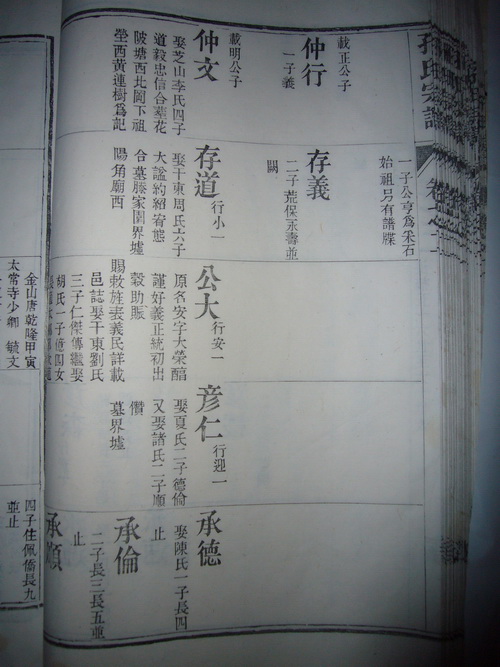 孫氏宗譜
卷之二
載正公子
仲行
一子義
載明公子
仲文
娶芝山李氏四子
道毅忠信合葬花
陂塘西北岡下祖
塋西黃連樹為記
一子公亨為采石
始祖另有譜牒
存義
二子荒保永壽並
闕
存道 行小一
娶干東周氏六子
大謐約紹宥態
合墓滕家園界墟
陽角廟西
公大 行安一
原名安字大榮醕
謹好義正統初出
穀助賑
賜敕旌表義民詳載
邑誌娶干東劉氏
三子仁傑傳繼娶
胡氏一子億四女
彦仁 行迎一
娶夏氏二子德倫
又娶諸氏二子順
儹
墓界墟
承德
娶陳氏一子長四
止
承倫
二子長三長五並
止
承順
金山唐乾隆甲寅
太常寺少卿 毓文
四子住佩僑長九
並止